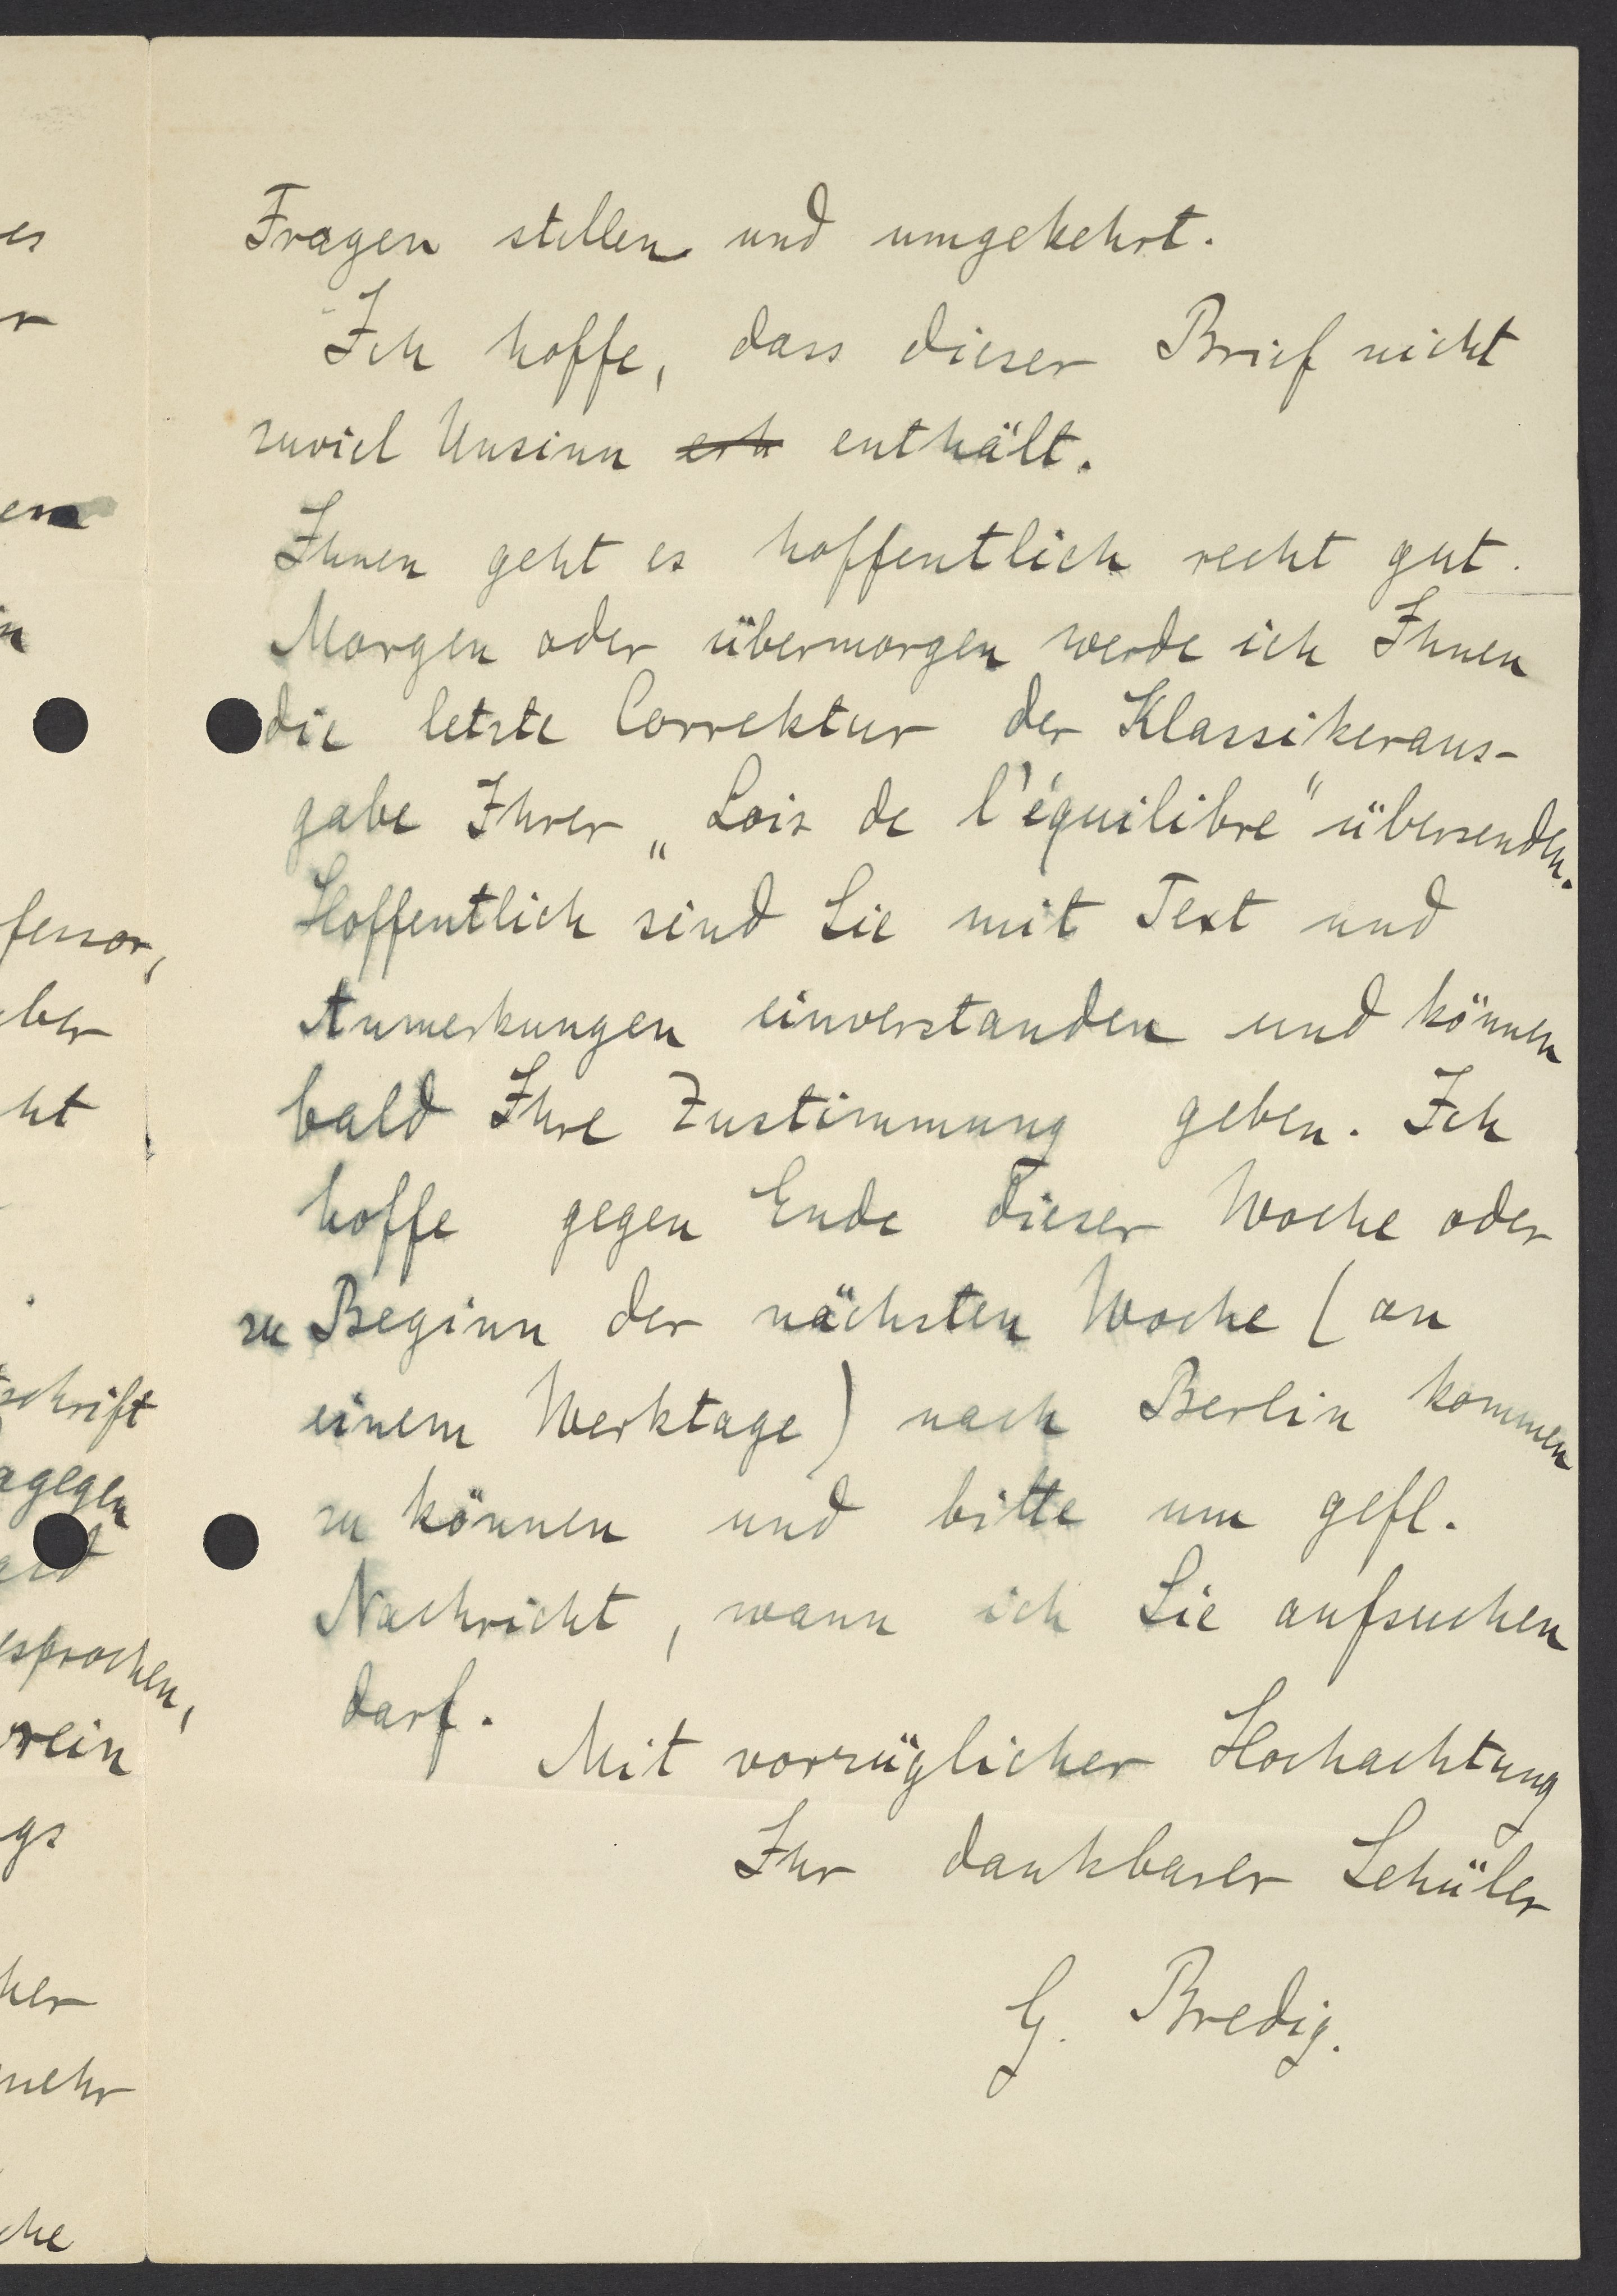 Fragen stellen und umgekehrt.
Ich hoffe, dass dieser Brief nicht
zuviel Unsinn enthält.
Ihnen geht es hoffentlich recht gut.
Morgen oder übermorgen werde ich Ihnen
die letzte Correktur der Klassikeraus-
gabe Ihrer „Lois de l'équilibre" übersenden.
Hoffentlich sind Sie mit Text und
Anmerkungen einverstanden und können
bald Ihre Zustimmung geben. Ich
hoffe gegen Ende dieser Woche oder
zu Beginn der nächsten Woche (an
einem Werktage) nach Berlin kommen
zu können und bitte um gefl.
Nachricht, wann ich Sie aufsuchen
darf.
Mit vorzüglicher Hochachtung
Ihr dankbarer Schüler
G. Bredig.